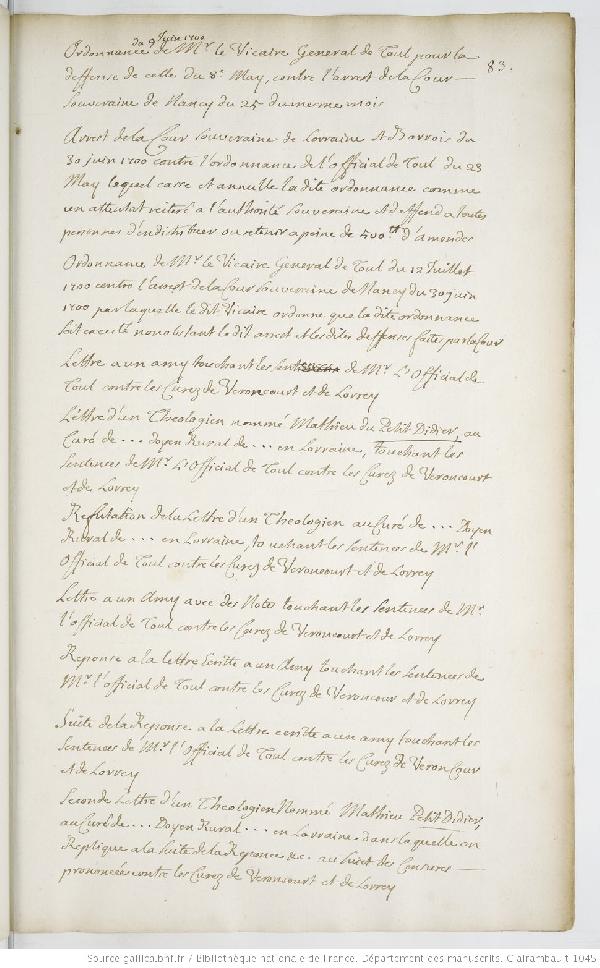 du 9 Juin 1700
Ordonnance de Mr. le Vicaire General de Toul pour la
deffense de celle du 8e. May, contre l'arrest de la Cour
Souveraine de Nancy du 25 du mesme mois
83.
Arrest de la Cour Souveraine de Lorraine et Barrois du
30 juin 1700 contre l'ordonnance de l'official de Toul du 23
May lequel casse et annulle la dite ordonnance comme
un attentat reiteré a l'authorité souveraine et deffend a toutes
personnes d'en distribuer ou retenir a peine de 500tt d'amendes
Ordonnance de Mr. le Vicaire General de Toul du 12 Juillet
1700 contre l'arrest de la Cour Souveraine de Nancy du 30 juin
1700 par laquelle le dit Vicaire ordonne que la dite ordonnance
soit execcuté nonobstant le dit arrest et les dites deffenses faites par la Cour
Lettre a un amy touchant les de Mr. L'Official de
Toul contre les Curez de Veroncourt et de Lorrey
Lettre d'un Theologien nommé Mathieu du Petit Didier, au
Curé de ... doyen Rural de ... en Lorraine, touchant les
Sentences de Mr. L'Official de Toul contre les Curez de Veroncourt
et de Lorrey
Refutation de la Lettre d'un Theologien au Curé de ... Doyen
Rural de ... en Lorraine, touchant les Sentences de Mr. l'
Official de Toul contre les Curez de Veroncourt et de Lorrey
Lettre a un Amy avec des Notes touchant les Sentences de Mr.
l'official de Toul contre les Curez de Veroncourt et de Lorrey
Reponse a la lettre Ecritte a un Amy touchant les Sentences de
Mr. l'official de Toul contre les Curez de Veroncour et de Lorrey
Suite de la Reponse a la Lettre ecritte a un amy touchant les
Sentences de Mr. l'Official de Toul contre les Curez de Veron Cour
et de Lorrey
Seconde Lettre d'un Theologien Nommé Mathieu Petit Didier,
au Curé de ... Doyen Rural ... en Lorraine dans laquelle on
Replique a la Suite de la Reponce &c. au Sujet des Censures
prononcées contre les Curez de Veroncourt et de Lorrey
Source gallica.bnf.fr / Bibliothèque nationale de France. Département des manuscrits. Clairambault 1045